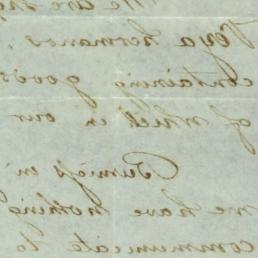 We are
Veya hermanos,
containing goods
of which is our
Business in
we have nothing
communicate to